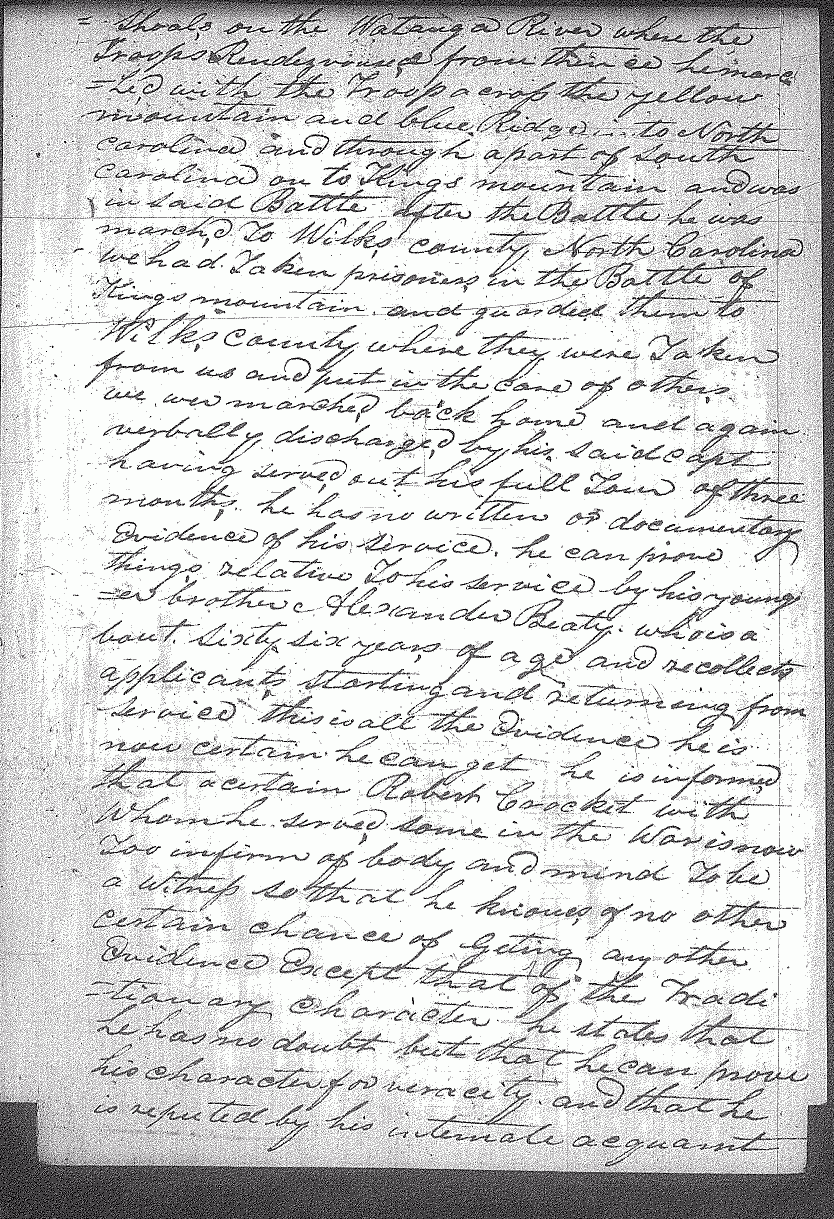 = Shoals on the Watauga River where the
Troops Rendezvoused from thence he marc
=h'd with the Troop across the yellow
mountain and blue Ridge into North
carolina and through a part of South
carolina on to Kings mountain and was
in said Battle after the Battle he was
march'd To Wilks county North Carolina
we had Taken prisoners in the Battle of
Kings mountain and guarded them to
Wilks county where they were Taken
from us and put in the care of others
we wer marched back home and again
verbally discharged by his said capt
having served out his full Tour of three
months he has no written or documentary
Evidence of his Service. he can prove
things relative To his service by his young
=er brother Alexander Beaty. who is a
bout Sixty six years of age and recollects
applicants starting and returning from
service this is all the Evidence he is
now certain he can get he is informed
that a certain Robert Crocket with
Whom he served some in the War is now
Too infirm of body and mind To be
a Witness so that he knows of no other
certain chance of Geting any other
Evidence Except that of the Tradi
=tionary character he states that
he has no doubt but that he can prove
his character for veracity and that he
is reputed by his intemate acquaint